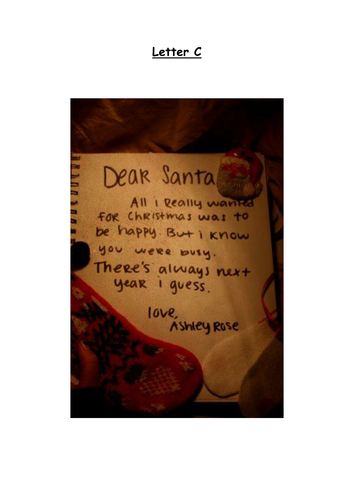 Letter C
Dear Santa
All i really wanted
for Christmas was to
be happy. But i know
you were busy.
There's always next
year i guess.
love,
Ashley Rose